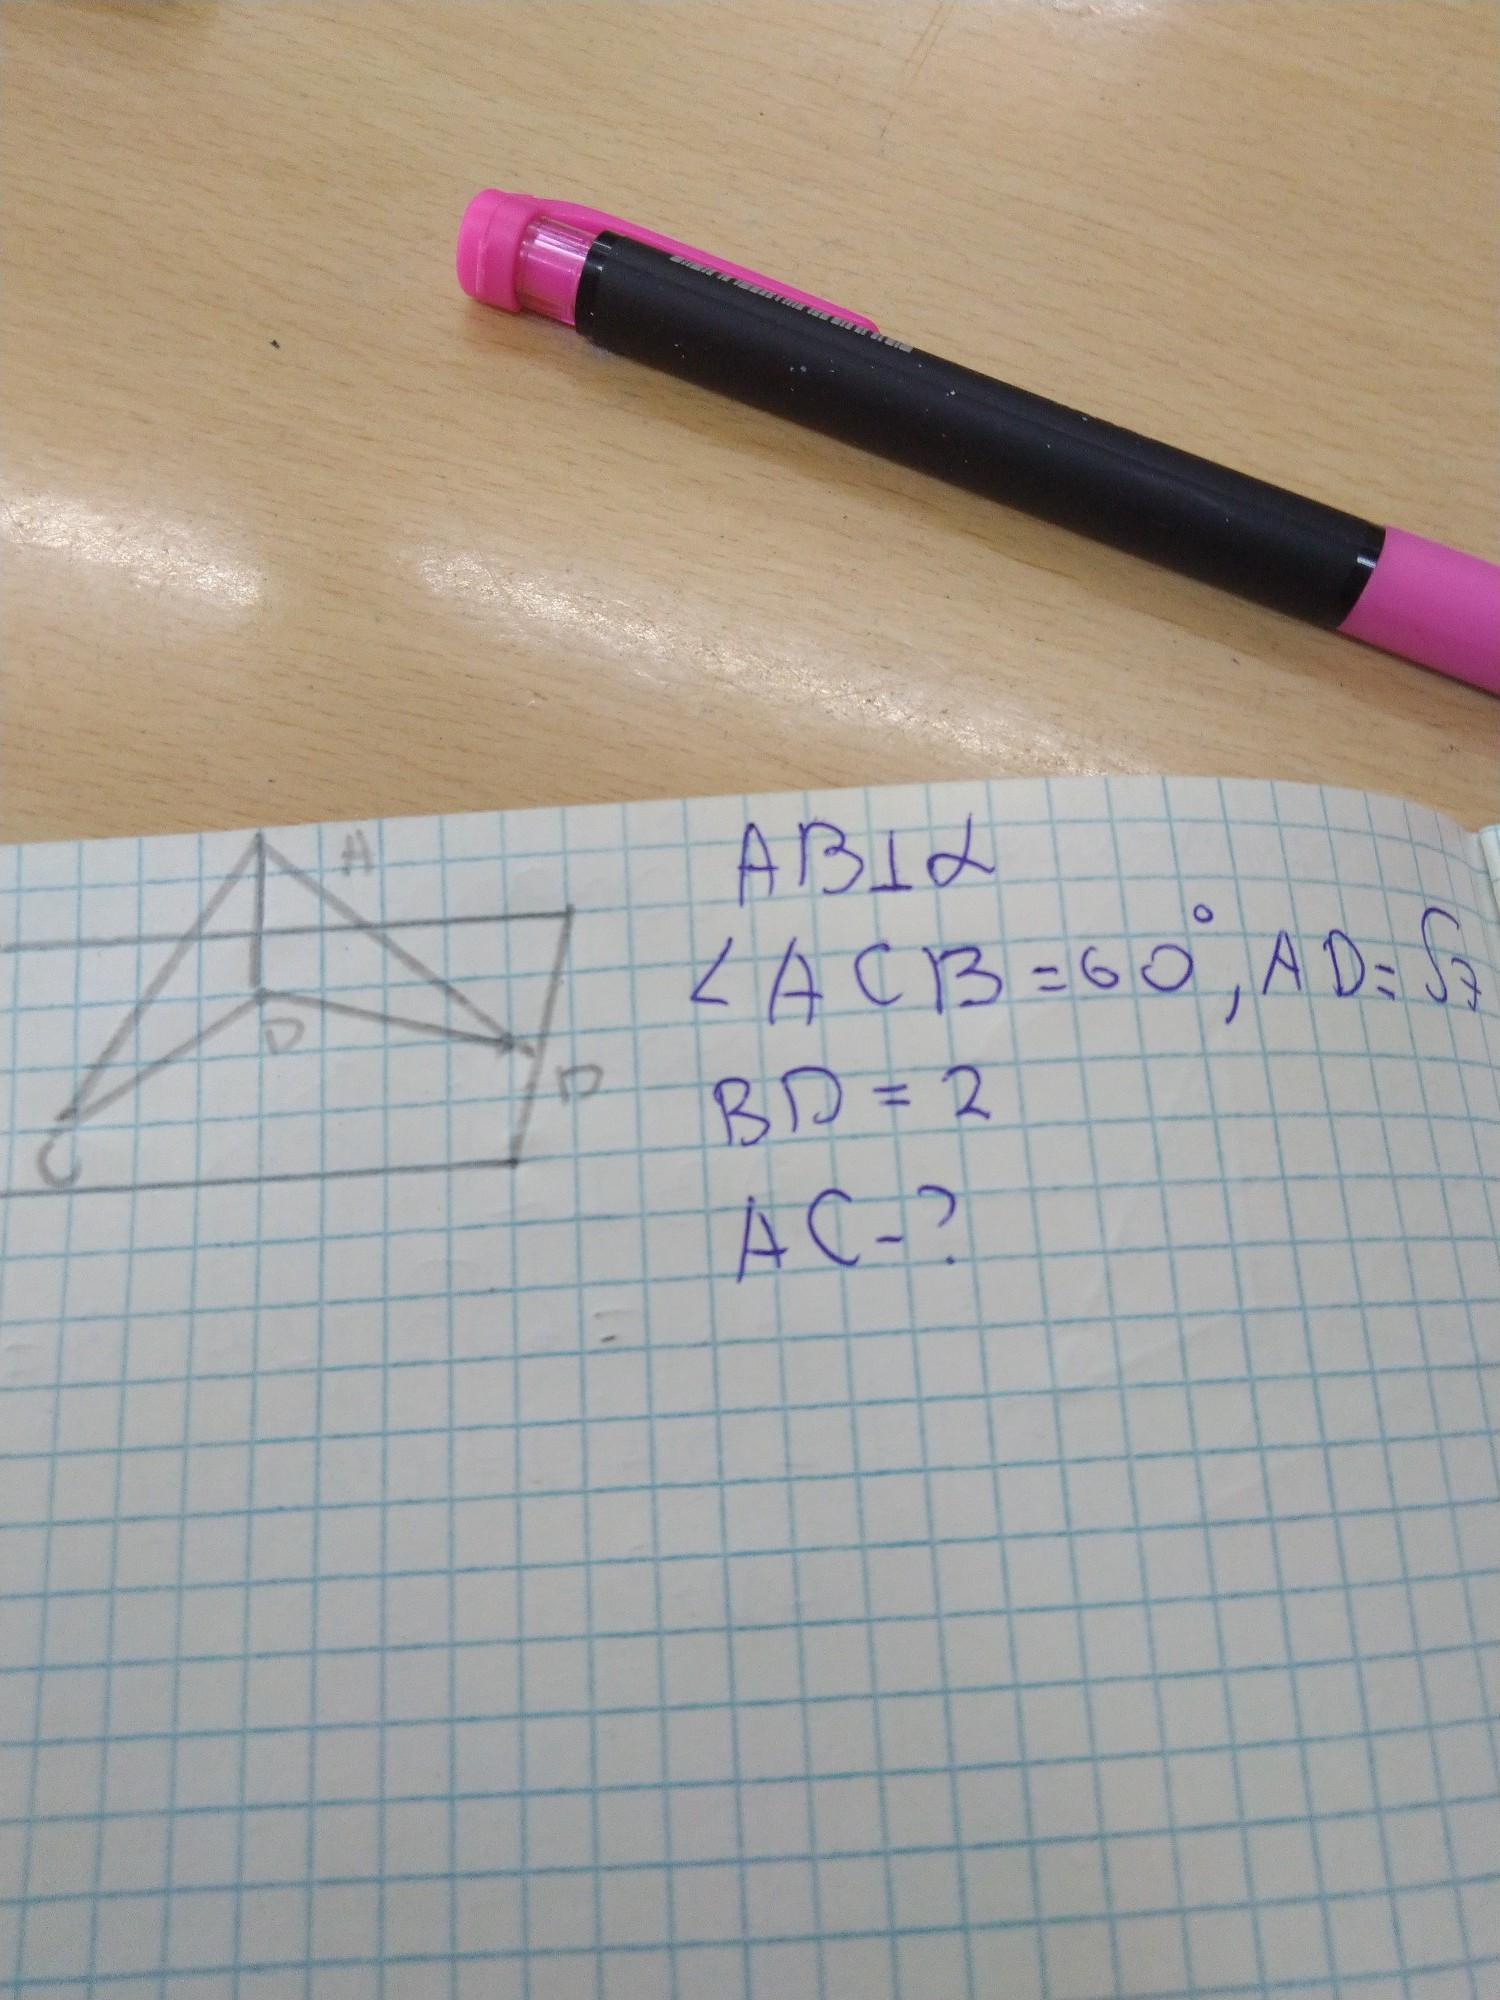 A
B
D
C
AB⊥α
∠ACB=60°, AD=√7
BD=2
AC-?